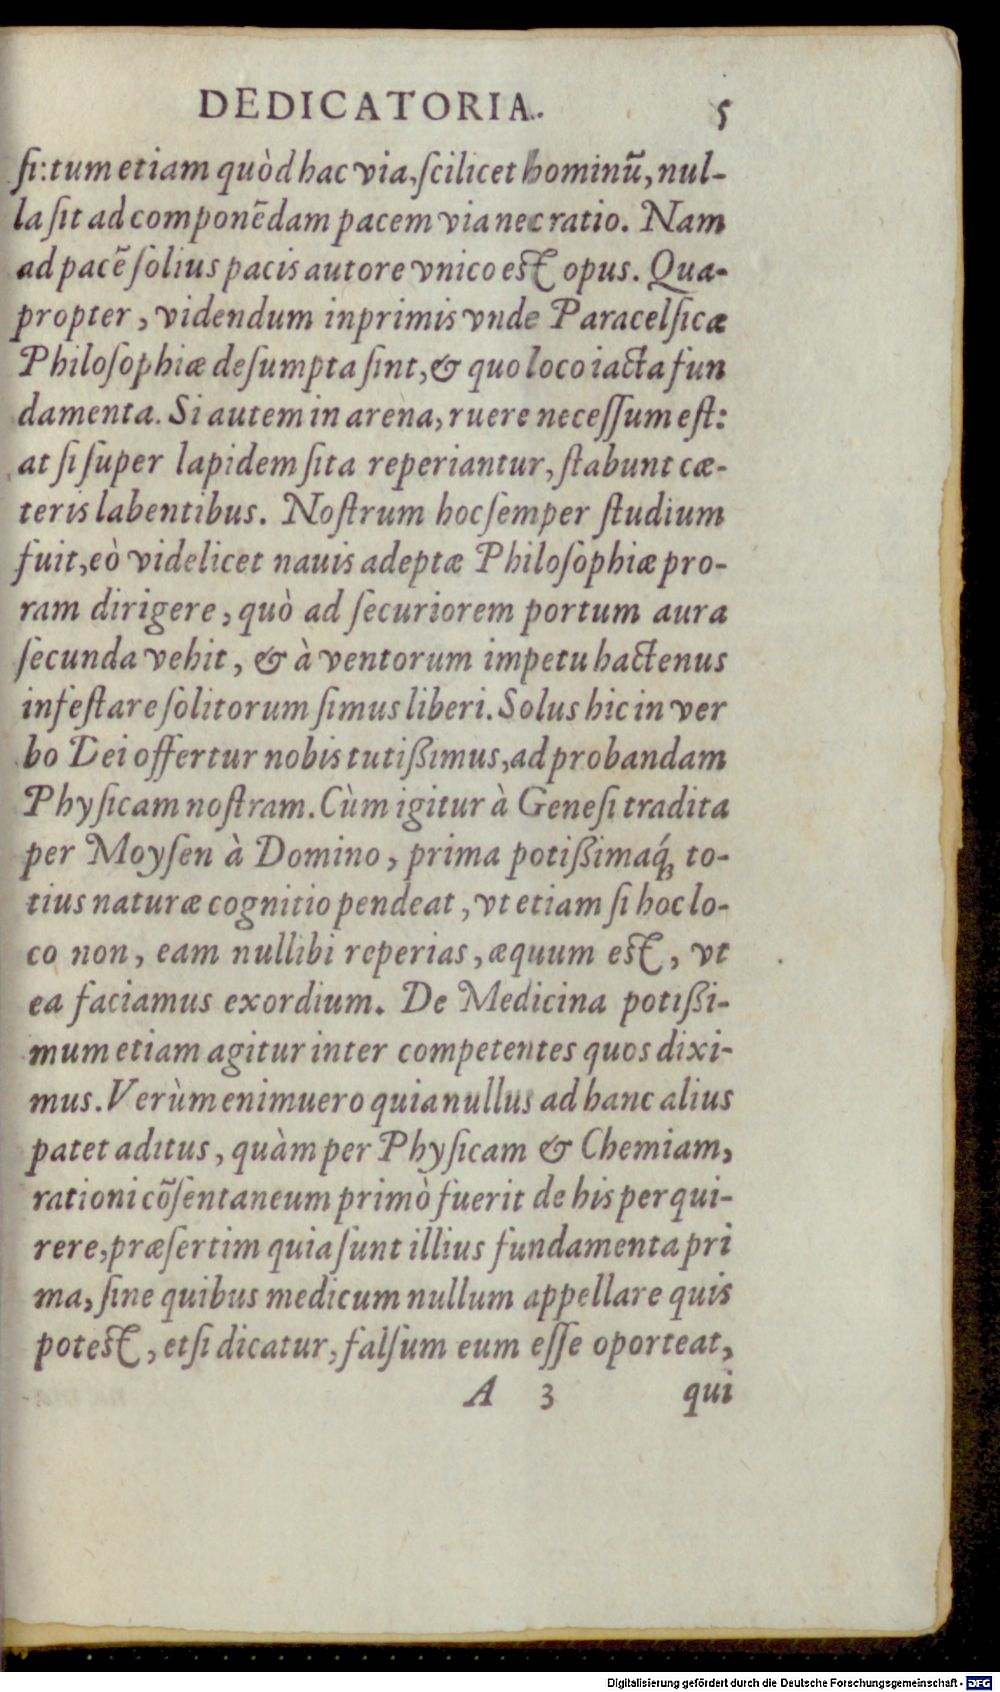 DEDICATORIA. 5
ſi: tum etiam quòd hac via, ſcilicet hominũ, nul-
la ſit ad componẽdam pacem via nec ratio. Nam
ad pacẽ ſolius pacis autore vnico est opus. Qua-
propter, videndum inprimis vnde Paracelſicæ
Philoſophiæ deſumpta ſint, & quo loco iacta fun
damenta. Si autem in arena, ruere neceſſum eſt:
at ſi ſuper lapidem ſita reperiantur, ſtabunt cæ-
teris labentibus. Noſtrum hoc ſemper ſtudium
fuit, eò videlicet nauis adeptæ Philoſophiæ pro-
ram dirigere, quò ad ſecuriorem portum aura
ſecunda vehit, & à ventorum impetu hactenus
infeſtare ſolitorum ſimus liberi. Solus hic in ver
bo Dei offertur nobis tutißimus, ad probandam
Phyſicam noſtram. Cùm igitur à Geneſi tradita
per Moyſen à Domino, prima potißimaq́; to-
tius naturæ cognitio pendeat, vt etiam ſi hoc lo-
co non, eam nullibi reperias, æquum est, vt
ea faciamus exordium. De Medicina potißi-
mum etiam agitur inter competentes quos dixi-
mus. Verùm enimuero quia nullus ad hanc alius
patet aditus, quàm per Phyſicam & Chemiam,
rationi cõſentaneum primò fuerit de his perqui-
rere, præſertim quia ſunt illius fundamenta pri
ma, ſine quibus medicum nullum appellare quis
potest, etſi dicatur, falſum eum eſſe oporteat,
A 3 qui
Digitalisierung gefördert durch die Deutsche Forschungsgemeinschaft - DFG